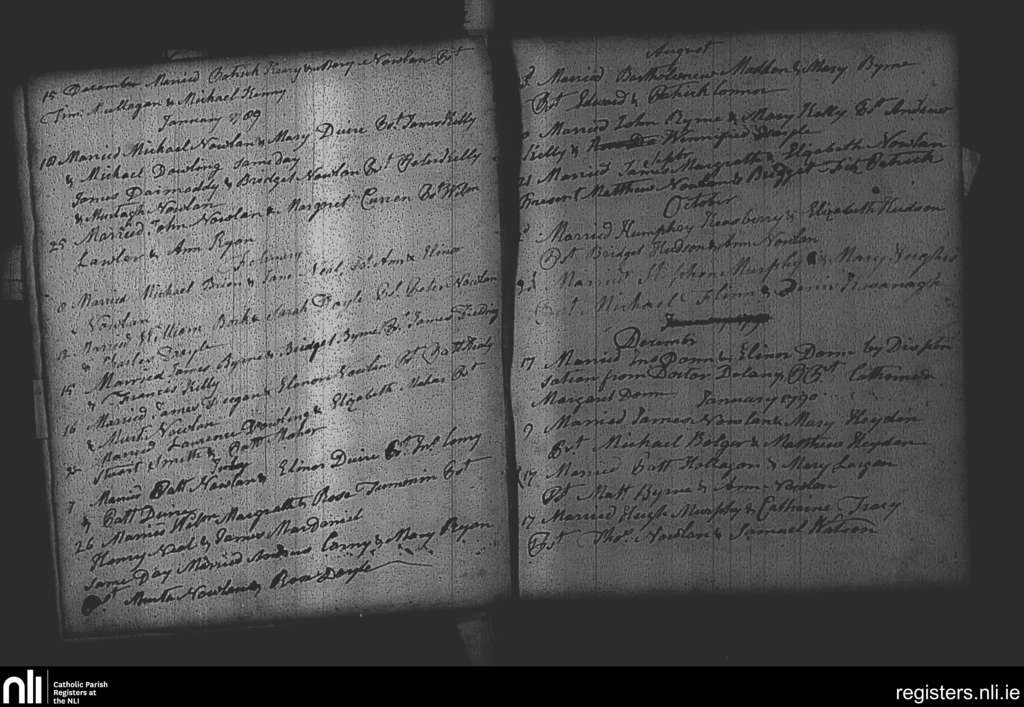 15 December Married Patrick Keary & Mary Nowlan Pst
Tim: Mullagan & Michael Kenny
January 1789
18 Married Michael Nowlan & Mary Duire Pst James Kelly
& Michael Dowling Same day
James Darmoddy & Bredget Nowlan Pst Peter Kelly
& Murtagh Nowlan
25 Married John Nowlan & Margret Curren Pst Willm
Lawlor & Ann Ryan
Febuary
8 Married Michael Brien & Jane Neil, Pst Ann & Elinor
Nowlan
12 Married William Bock & Sarah Doyle Pst Peter Nowlan
& Charles Doyle
15 Married James Byrne & Bridget Byrne Pst James
& Francis Kelly
16 Married James Keegan & Elenor Nowlan Pst Patt Healy
& Murt: Nowlan
Married Laurence Dowling & Elizabeth Mahar Pst
Stuart Smith & Patt Mahor
July
7 Maried Patt Nowlan & Elinor Duire Pst Jno:
& Patt Duire
26 Married Willm Margrath & Rose Pst
Henry Neal & James Mardaniel
Same Day Married Andrew & Mary Ryan
Pst Murta Nowlan & Rose Doyle
August
Married Bartholemew Madden & Mary Byrne
Pst Edward & Patrick Connor
Married John Byrne & Mary Kelly Pst Andrew
Kelly & Winnifred Doyle
Septr
21 Married James Margrath & Elizabeth Nowlan
Present Matthew Nowlan & Bridget Fitz Patrick
October
Married Humphey & Elizabeth Hudson
Pst Bridget Hudson & Ann Nowlan
Married Stephen Murphy & Mary Hughes
Pst. Michael Flinn & Kavanagh
December
17 Married Jno Donn & Elinor Donn by Dispen
sation from Doctor Delany, Pst Catherine &
Margaret Donn January 1790
9 Married James Nowlan & Mary Heydon
Pst Michael Bolger & Matthew Heydon
17 Married Patt Hollagan & Mary Largan
Pst Matt Byrne & Ann Nowlan
17 Married Hugh Murphy & Catherine Tracy
Pst Thos. Nowlan & Samuel Watson
nli
Catholic Parish
Registers at
the NLI
registers.nli.ie